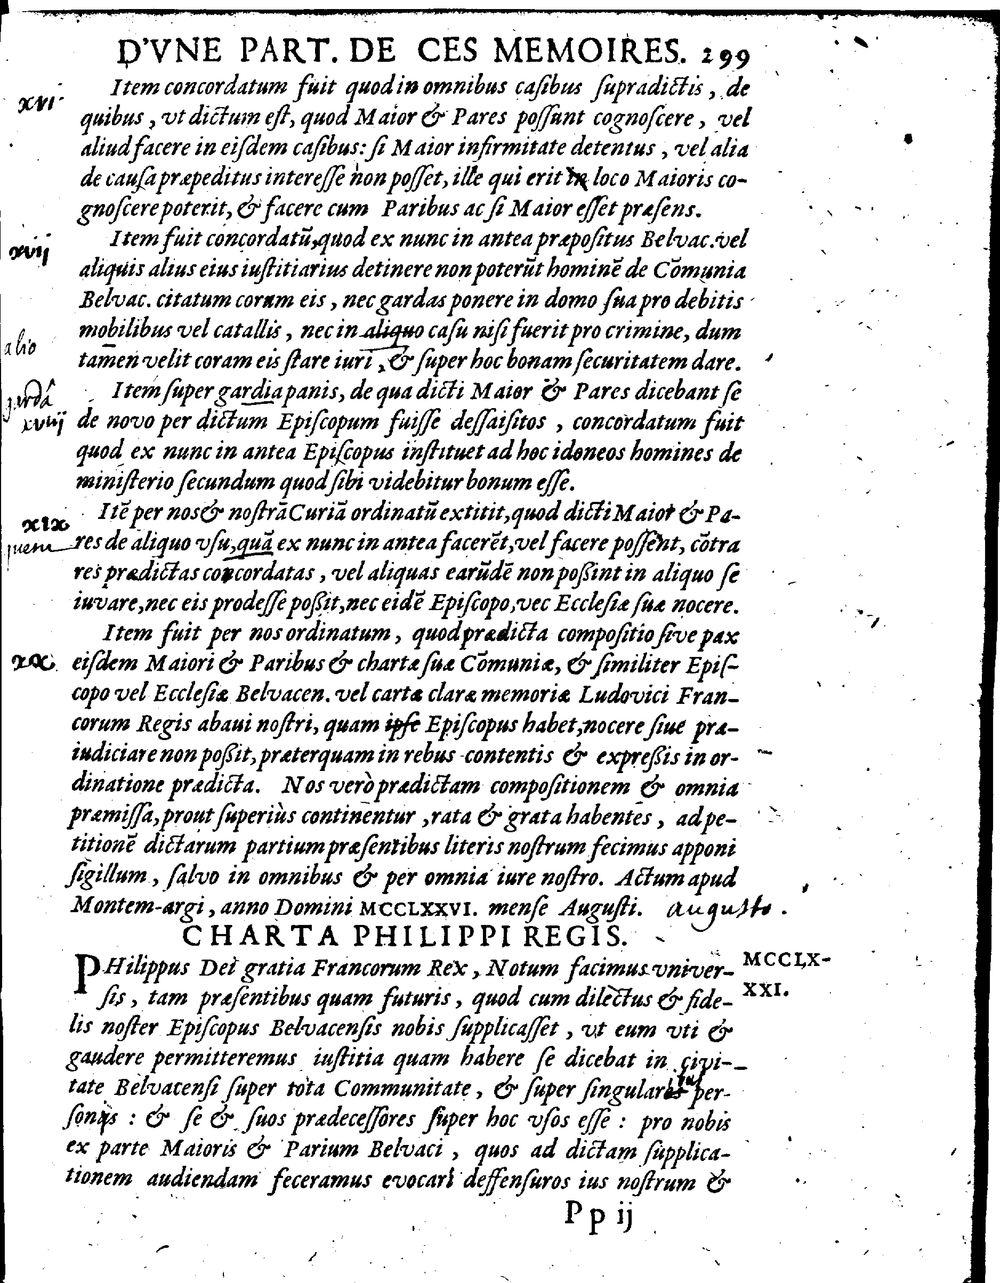 D'VNE PART. DE CES MEMOIRES. 299
xvi.
Item concordatum fuit quod in omnibus caſibus ſupradictis, de
quibus, vt dictum eſt, quod Maior & Pares poſſunt cognoſcere, vel
aliud facere in eiſdem caſibus: ſi Maior infirmitate detentus, vel alia
de cauſa præpeditus intereſſe non poſſet, ille qui erit in loco Maioris co-
gnoſcere poterit, & facere cum Paribus ac ſi Maior eſſet præſens.
xvij
Item fuit concordatũ, quod ex nunc in antea præpoſitus Belvac. vel
aliquis alius eius iuſtitiarius detinere non poterũt hominẽ de Cõmunia
Belvac. citatum coram eis, nec gardas ponere in domo ſua pro debitis
mobilibus vel catallis, nec in aliquo caſu niſi fuerit pro crimine, dum
alio
tamen velit coram eis ſtare iuri, & ſuper hoc bonam ſecuritatem dare.
gardâ
Item ſuper gardia panis, de qua dicti Maior & Pares dicebant ſe
xviij
de novo per dictum Epiſcopum fuiſſe deſſaiſitos, concordatum fuit
quod ex nunc in antea Epiſcopus inſtituet ad hoc idoneos homines de
miniſterio ſecundum quod ſibi videbitur bonum eſſe.
xix
Itẽ per nos & noſtrã Curiã ordinatũ extitit, quod dicti Maior & Pa-
quem
res de aliquo vſu, quã ex nunc in antea facerẽt, vel facere poſſent, cõtra
res prædictas concordatas, vel aliquas earũdẽ non poßint in aliquo ſe
iuvare, nec eis prodeſſe poßit, nec eidẽ Epiſcopo, vec Eccleſiæ ſuæ nocere.
Item fuit per nos ordinatum, quod prædicta compoſitio ſive pax
xx.
eiſdem Maiori & Paribus & chartæ ſuæ Cõmuniæ, & ſimiliter Epiſ-
copo vel Eccleſiæ Belvacen. vel cartæ claræ memoriæ Ludovici Fran-
corum Regis abaui noſtri, quam ipſe Epiſcopus habet, nocere ſiue præ-
iudiciare non poßit, præterquam in rebus contentis & expreßis in or-
dinatione prædicta. Nos verò prædictam compoſitionem & omnia
præmiſſa, prout ſuperiùs continentur, rata & grata habentes, ad pe-
titionẽ dictarum partium præſentibus literis noſtrum fecimus apponi
ſigillum, ſalvo in omnibus & per omnia iure noſtro. Actum apud
Montem-argi, anno Domini MCCLXXVI. menſe Auguſti. augusto.
CHARTA PHILIPPI REGIS.
PHilippus Dei gratia Francorum Rex, Notum facimus vniver-
MCCLX-
XXI.
ſis, tam præſentibus quam futuris, quod cum dilectus & fide-
lis noſter Epiſcopus Belvacenſis nobis ſupplicaſſet, vt eum vti &
gaudere permitteremus iuſtitia quam habere ſe dicebat in civi-
tate Belvacenſi ſuper tota Communitate, & ſuper ſingulares per-
ſonas : & ſe & ſuos prædeceſſores ſuper hoc vſos eſſe : pro nobis
ex parte Maioris & Parium Belvaci, quos ad dictam ſupplica-
tionem audiendam feceramus evocari deffenſuros ius noſtrum &
Pp ij